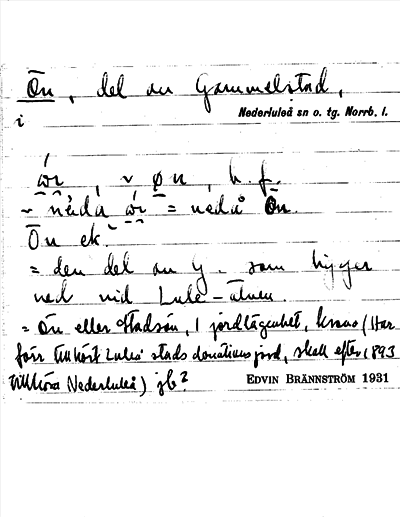 Ön, del av Gammelstad,
Nederluleå sn o. tg. Norrb. l.
i
, v øn, b. f.
= nedå Ön.
Ön ek.
= den del av G. som ligger
ned vid Lule-älven.
= Ön eller Stadsön, 1 jordlägenhet, krono (Har
förr tillhört Luleå stads donationsjord, skall efter 1893
tillhöra Nederluleå) jb?
EDVIN BRÄNNSTRÖM 1931